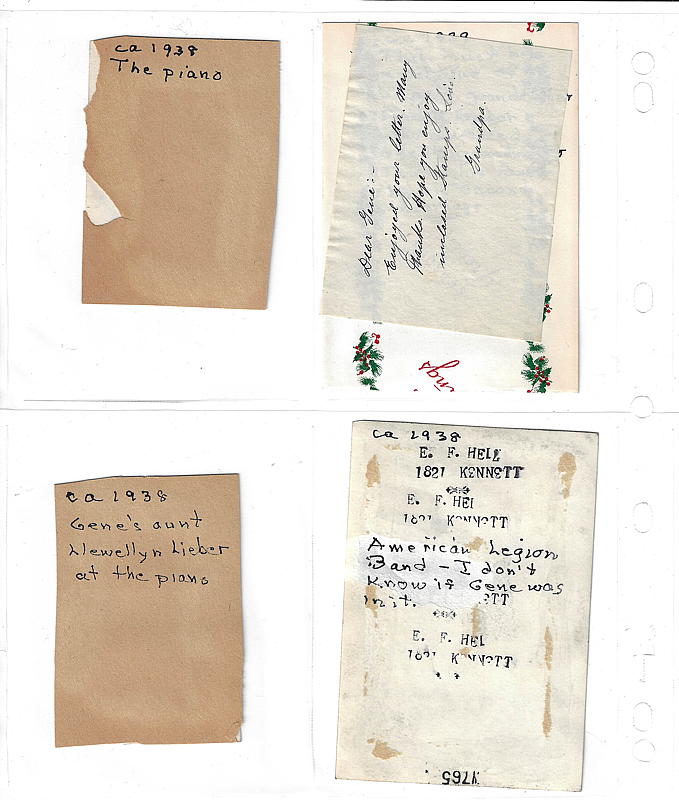 ca 1938
The piano
Dear Gene:-
Enjoyed your letter. Many
thanks. Hope you enjoy
inclosed stamps. Love.
Grandpa.
ngs
ca 1938
Gene's aunt
Llewellyn Lieber
at the piano
ca 1938
E. F. HEI
1821 KENNETT
E. F. HEI
1821 K NNETT
American Legion
Band - I don't
Know if Gene was
in it.
ETT
E. F. HEI
1821 K NNETT
1765